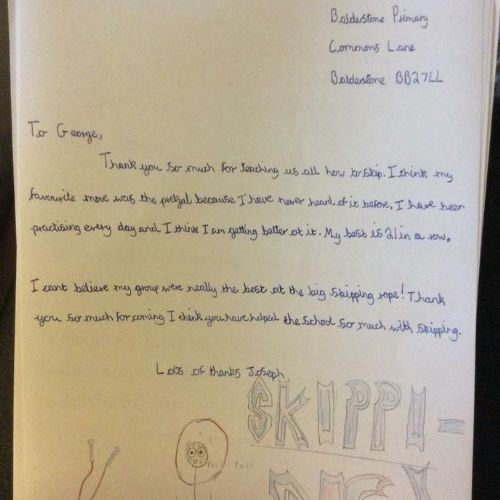 Balderstone Primary
Commons Lane
Balderstone BB27LL
To George,
Thank you so much for teaching us all how to skip. I think my
favourite move was the pretzel because I have never heard of it before. I have been
practising every day and I think I am getting better at it. My best is 21 in a row.
I cant believe my group were really the best at the big skipping rope! Thank
you so much for coming I think you have helped the school so much with skipping.
Lots of thanks Joseph
SKIPPI-
NG!